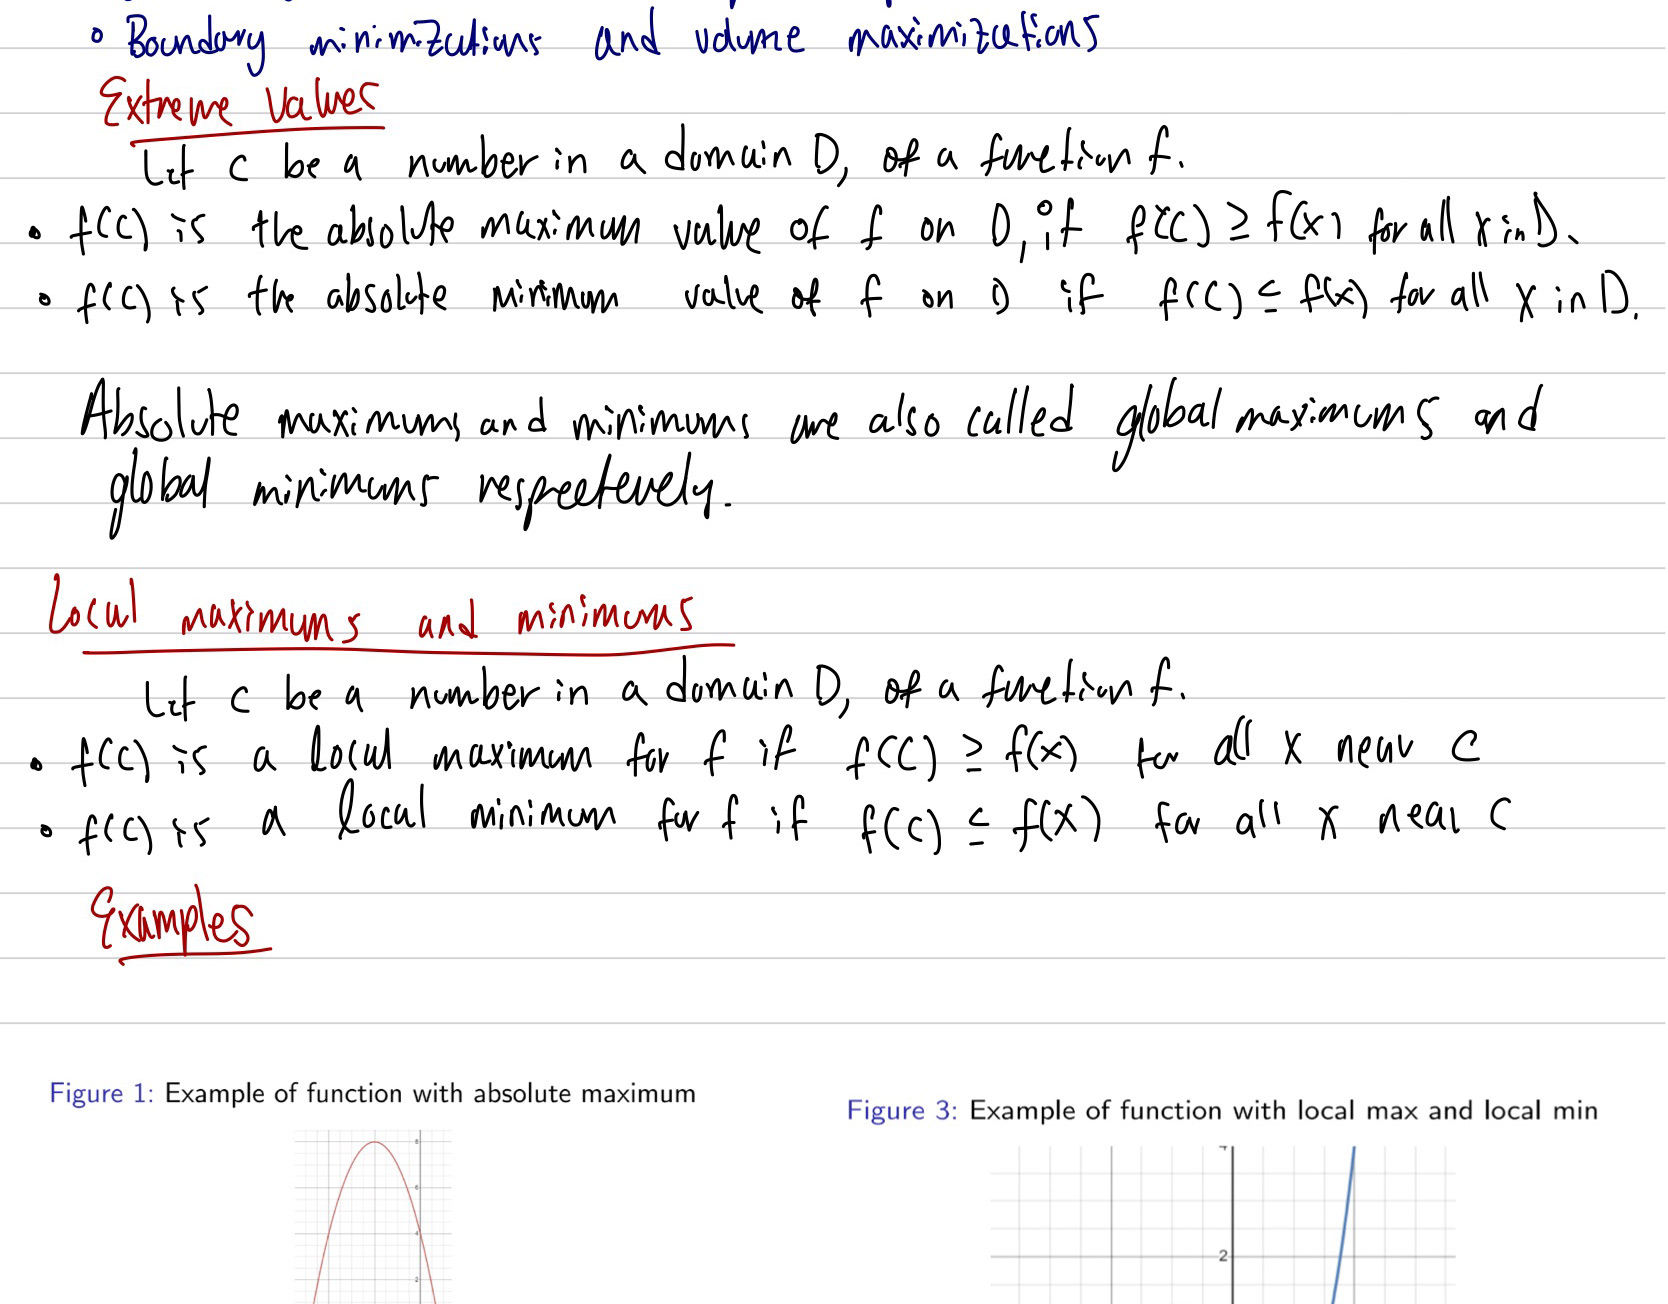 Boundary minimizations and volume maximizations
Extreme Values
Let c be a number in a domain D, of a function f.
• f(c) is the absolute maximum value of f on D, if f(c) ≥ f(x) for all x in D.
• f(c) is the absolute minimum value of f on D if f(c) ≤ f(x) for all x in D.
Absolute maximums and minimums are also called global maximums and
global minimums respectevely.
Local maximums and minimums
Let c be a number in a domain D, of a function f.
• f(c) is a local maximum for f if f(c) ≥ f(x) for all x near c
• f(c) is a local minimum for f if f(c) ≤ f(x) for all x near c
Examples
Figure 1: Example of function with absolute maximum
Figure 3: Example of function with local max and local min
8
6
4
2
4
2